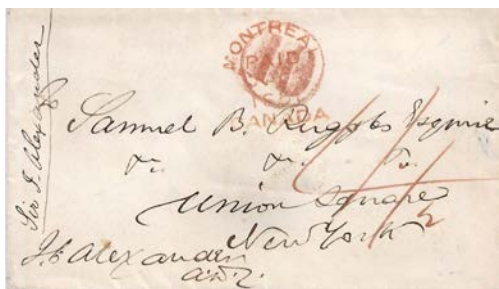 MONTREAL
PAID
CANADA
Sir J. Alexander
Samuel B. Ruggles Esquire
&c. &c. &c.
Union Square
New York
J. E. Alexander